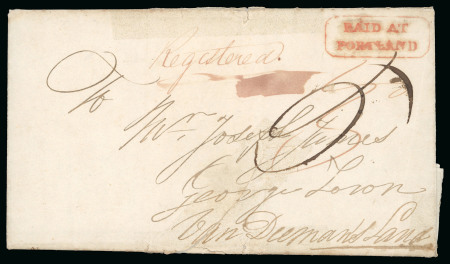 PAID AT
PORTLAND
Registered
To
Mr. Joseph
George Town
Van Deemans Land